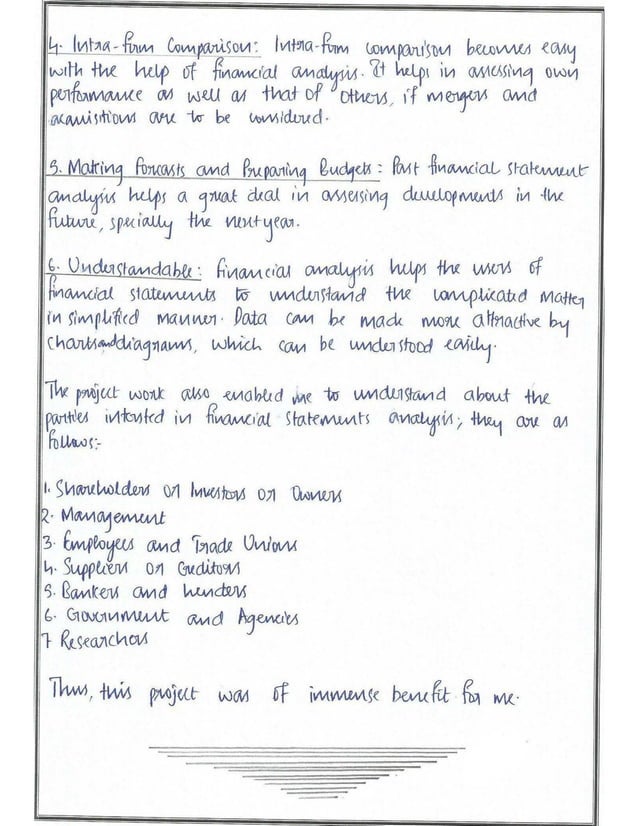 4. Intra-firm Comparison: Intra-firm comparison becomes easy
with the help of financial analysis. It helps in assessing own
performance as well as that of others, if mergers and
acquisitions are to be considered.
5. Making Forcasts and Preparing Budgets: Past financial statement
analysis helps a great deal in assessing developments in the
future, specially the next year.
6. Understandable: Financial analysis helps the users of
financial statements to understand the complicated matter
in simplified manner. Data can be made more attractive by
charts and diagrams, which can be understood easily.
The project work also enabled me to understand about the
parties intersted in financial statements analysis; they are as
follows:-
1. Shareholders or Investors or Owners
2. Management
3. Employees and Trade Unions
4. Suppliers or Creditors
5. Bankers and Lenders
6. Government and Agencies
7 Researchers
Thus, this project was of immense benefit for me.